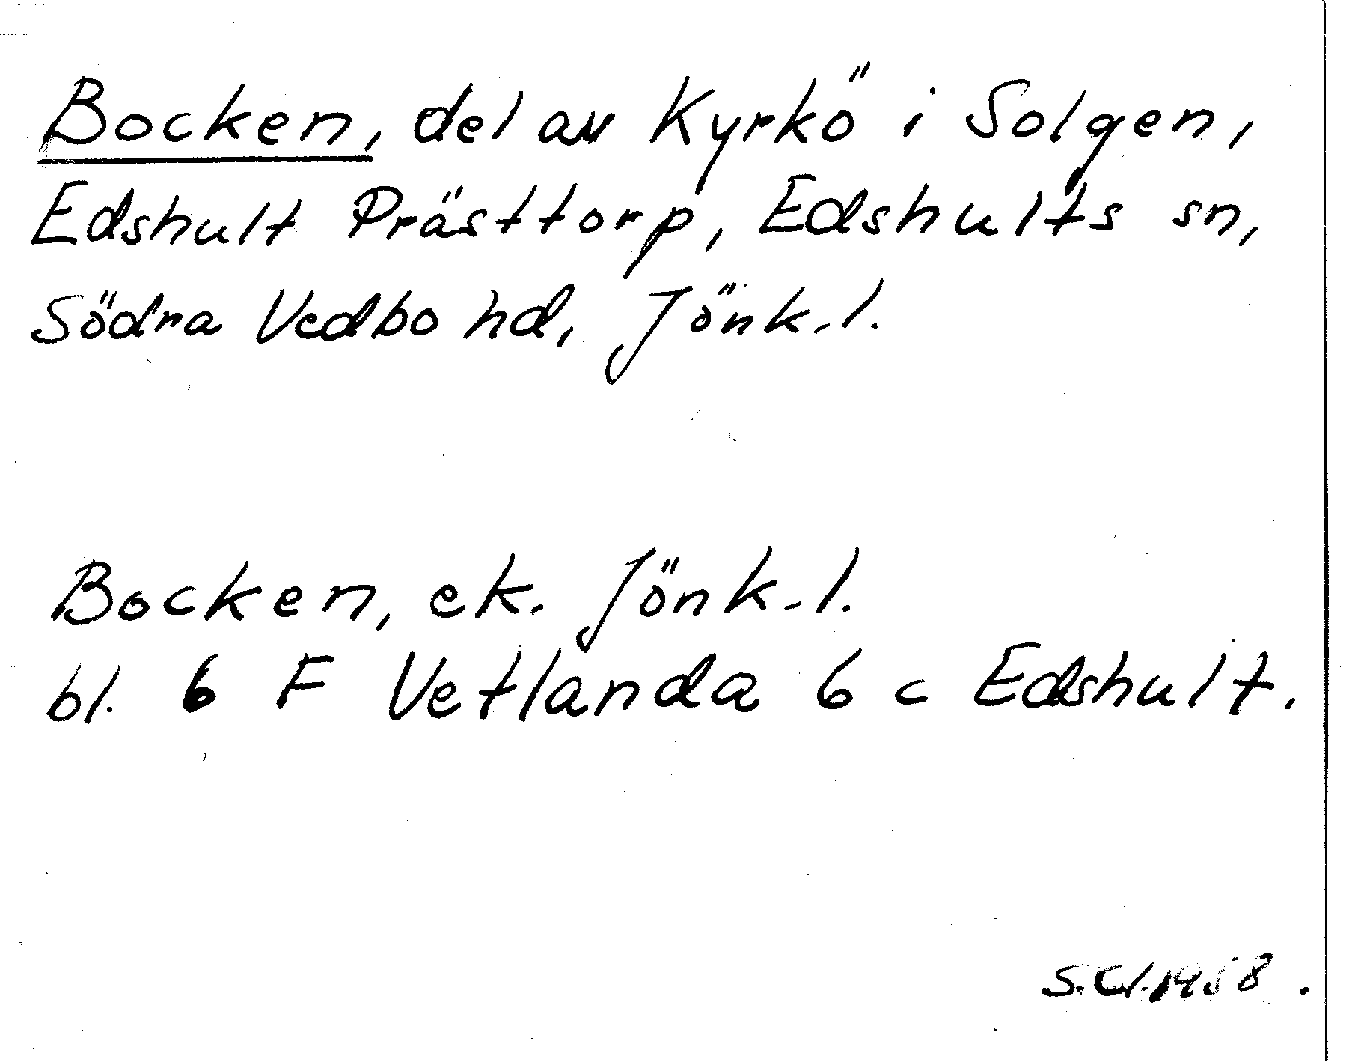 Bocken, del av Kyrkö i Solgen,
Edshult Prästtorp, Edshults sn,
Södra Vedbo hd, Jönk.l.
Bocken, ek. Jönk.l.
bl. 6 F Vetlanda 6 c Edshult.
S.Cl. 1958.